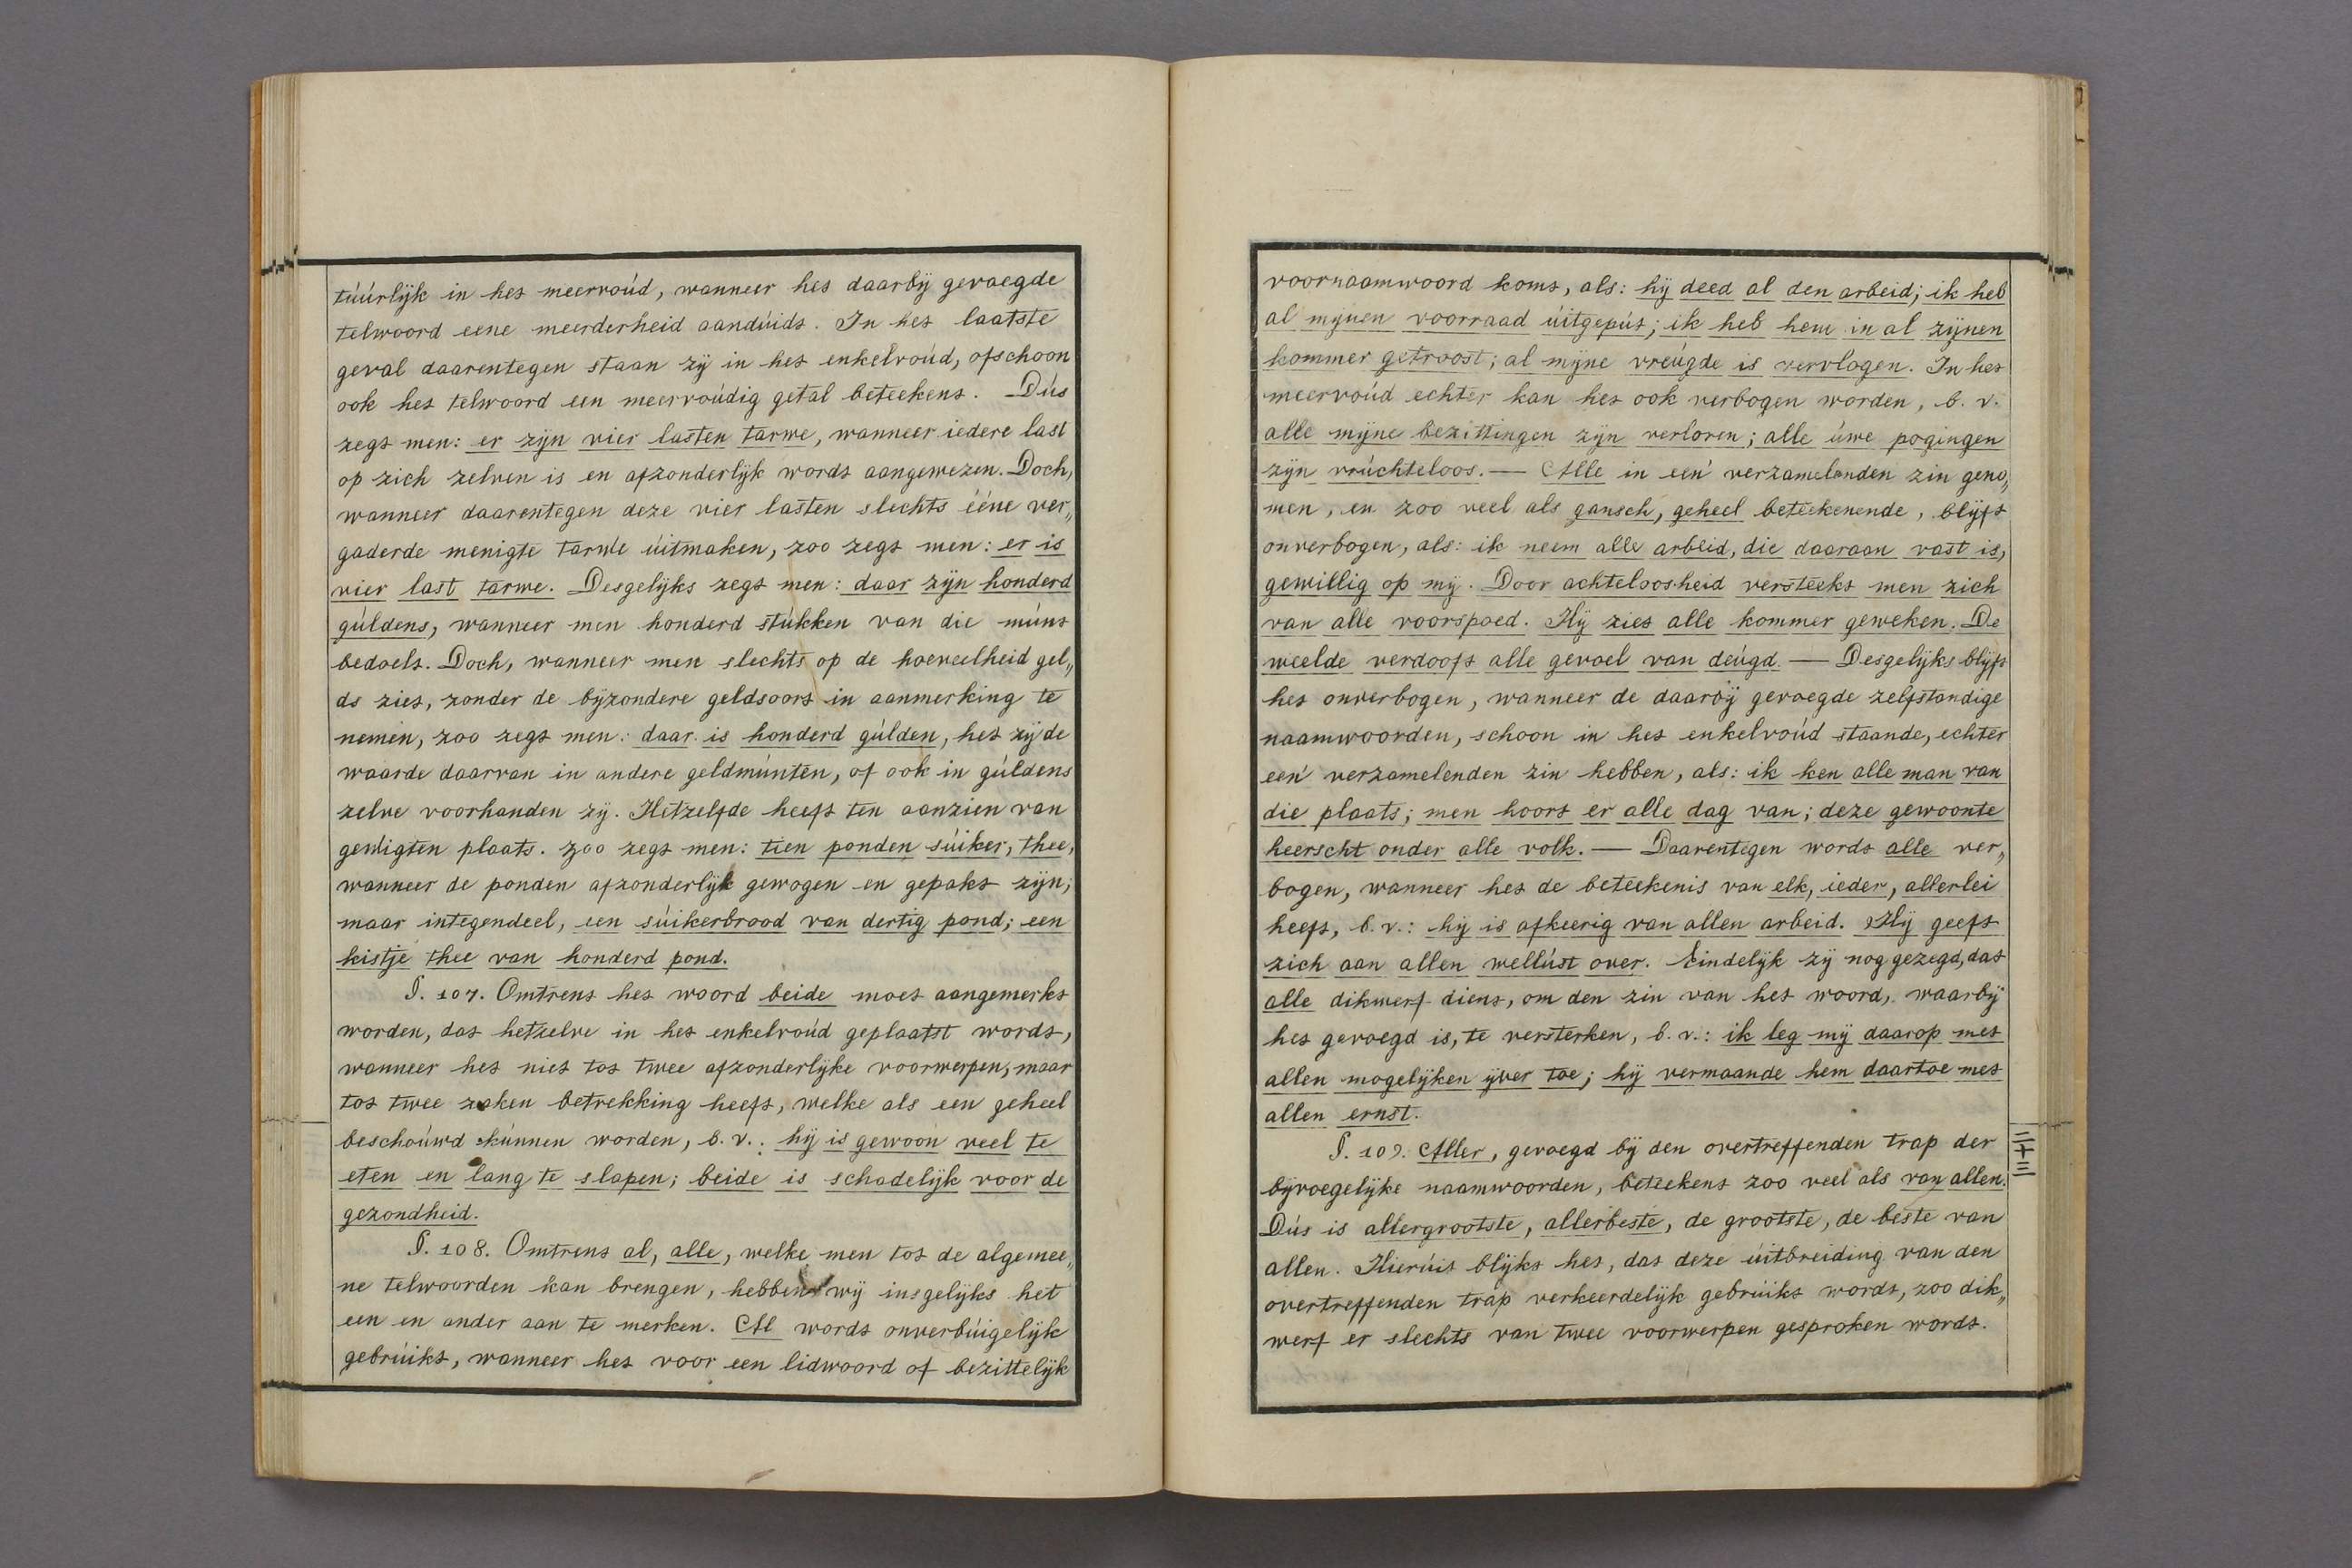 túúrlijk in het meervoúd, wanneer het daarbij gevoegde
telwoord eene meerderheid aandúidt. In het laatste
geval daarentegen staan zij in het enkelvoúd, ofschoon
ook het telwoord een meervoúdig getal beteekent. Dús
zegt men: er zijn vier lasten tarwe, wanneer iedere last
op zich zelven is en afzonderlijk wordt aangewezen. Doch,
wanneer daarentegen deze vier lasten slechts ééne ver„
gaderde menigte tarwe úitmaken, zoo zegt men: er is
vier last tarwe. Desgelijks zegt men: daar zijn honderd
gúldens, wanneer men honderd stúkken van die múnt
bedoelt. Doch, wanneer men slechts op de hoeveelheid gel„
ds ziet, zonder de bijzondere geldsoort in aanmerking te
nemen, zoo zegt men: daar is honderd gúlden, het zij de
waarde daarvan in andere geldmúnten, of ook in gúldens
zelve voorhanden zij. Hetzelfde heeft ten aanzien van
gewigten plaats. Zoo zegt men: tien ponden súiker, thee,
wanneer de ponden afzonderlijk gewogen en gepakt zijn;
maar integendeel, een súikerbrood van dertig pond; een
kistje thee van honderd pond.
§. 107. Omtrent het woord beide moet aangemerkt
worden, dat hetzelve in het enkelvoúd geplaatst wordt,
wanneer het niet tot twee afzonderlijke voorwerpen, maar
tot twee zaken betrekking heeft, welke als een geheel
beschoúwd kúnnen worden, b. v.: hij is gewoon veel te
eten en lang te slapen; beide is schadelijk voor de
gezondheid.
§. 108. Omtrent al, alle, welke men tot de algemee„
ne telwoorden kan brengen, hebben wij insgelijks het
een en ander aan te merken. Al wordt onverbúigelijk
gebrúikt, wanneer het voor een lidwoord of bezittelijk
voornaamwoord komt, als: hij deed al den arbeid; ik heb
al mijnen voorraad úitgepút; ik heb hem in al zijnen
kommer getroost; al mijne vreúgde is vervlogen. In het
meervoúd echter kan het ook verbogen worden, b. v.
alle mijne bezittingen zijn verloren; alle úwe pogingen
zijn vrúchteloos. — Alle in een' verzamelenden zin geno„
men, en zoo veel als gansch, geheel beteekenende, blijft
onverbogen, als: ik neem alle arbeid, die daaraan vast is,
gewillig op mij. Door achteloosheid versteekt men zich
van alle voorspoed. Hij ziet alle kommer geweken. De
weelde verdooft alle gevoel van deúgd. — Desgelijks blijft
het onverbogen, wanneer de daarbij gevoegde zelfstandige
naamwoorden, schoon in het enkelvoúd staande, echter
een' verzamelenden zin hebben, als: ik ken alle man van
die plaats; men hoort er alle dag van; deze gewoonte
heerscht onder alle volk. — Daarentegen wordt alle ver„
bogen, wanneer het de beteekenis van elk, ieder, allerlei
heeft, b. v.: hij is afkeerig van allen arbeid. Hij geeft
zich aan allen wellúst over. Eindelijk zij nog gezegd, dat
alle dikwerf dient, om den zin van het woord, waarbij
het gevoegd is, te versterken, b. v.: ik leg mij daarop met
allen mogelijken ijver toe; hij vermaande hem daartoe met
allen ernst.
§. 109. Aller, gevoegd bij den overtreffenden trap der
bijvoegelijke naamwoorden, beteekent zoo veel als van allen.
Dús is allergrootste, allerbeste, de grootste, de beste van
allen. Hierúit blijkt het, dat deze úitbreiding van den
overtreffenden trap verkeerdelijk gebrúikt wordt, zoo dik„
werf er slechts van twee voorwerpen gesproken wordt.
二十三